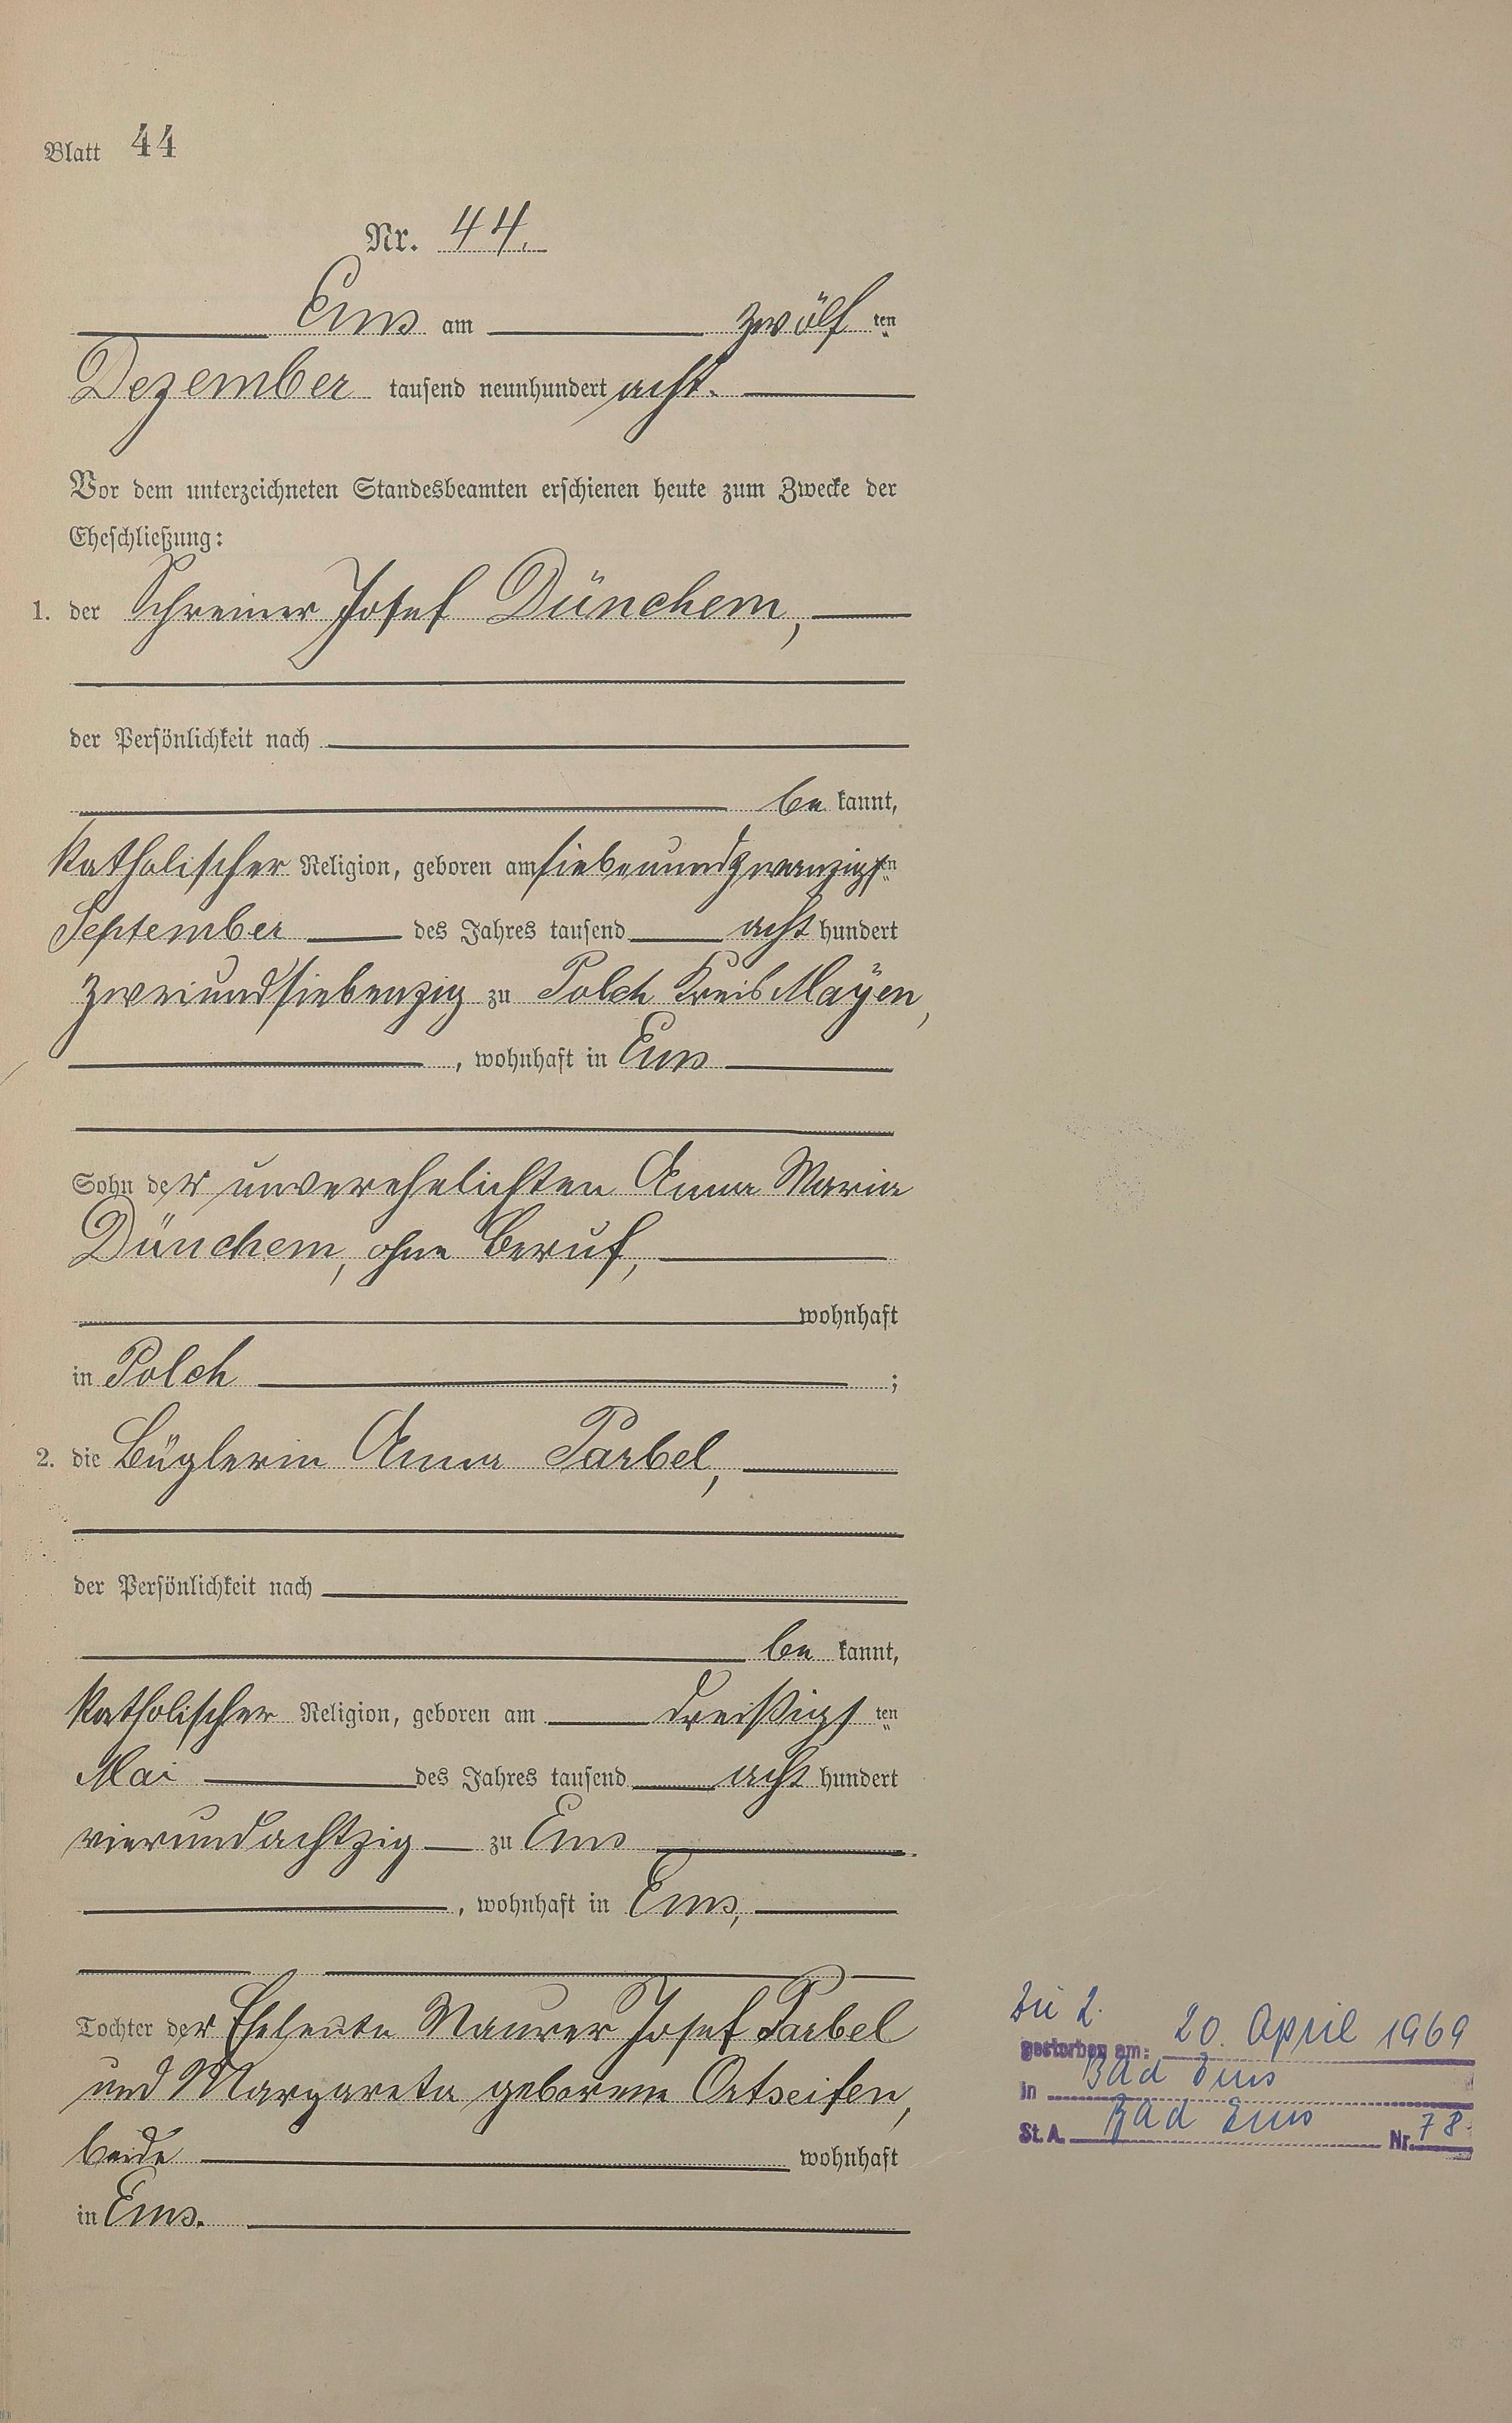 Blatt 44
Nr. 44.
Ems am zwölf ten
Dezember tausend neunhundert acht.
Vor dem unterzeichneten Standesbeamten erschienen heute zum Zwecke der
Eheschließung:
1. der Schreiner Josef Dünchem,
der Persönlichkeit nach
be kannt,
katholischer Religion, geboren am siebenundzwanzigsten
September des Jahres tausend acht hundert
zweiundsiebenzig zu Polch Kreis Mayen,
, wohnhaft in Ems
Sohn der unverehelichten Anna Maria
Dünchem, ohne Beruf,
wohnhaft
in Polch ;
2. die Büglerin Anna Parbel,
der Persönlichkeit nach
be kannt,
katholischer Religion, geboren am dreißigs ten
Mai des Jahres tausend acht hundert
vierundachtzig zu Ems
, wohnhaft in Ems,
Tochter der Eheleute Maurer Josef Parbel
und Margareta geborene Ortseifen,
beide wohnhaft
in Ems.
Die 2.
gestorben am: 20. April 1969
in Bad Ems
St. A. Bad Ems Nr. 78